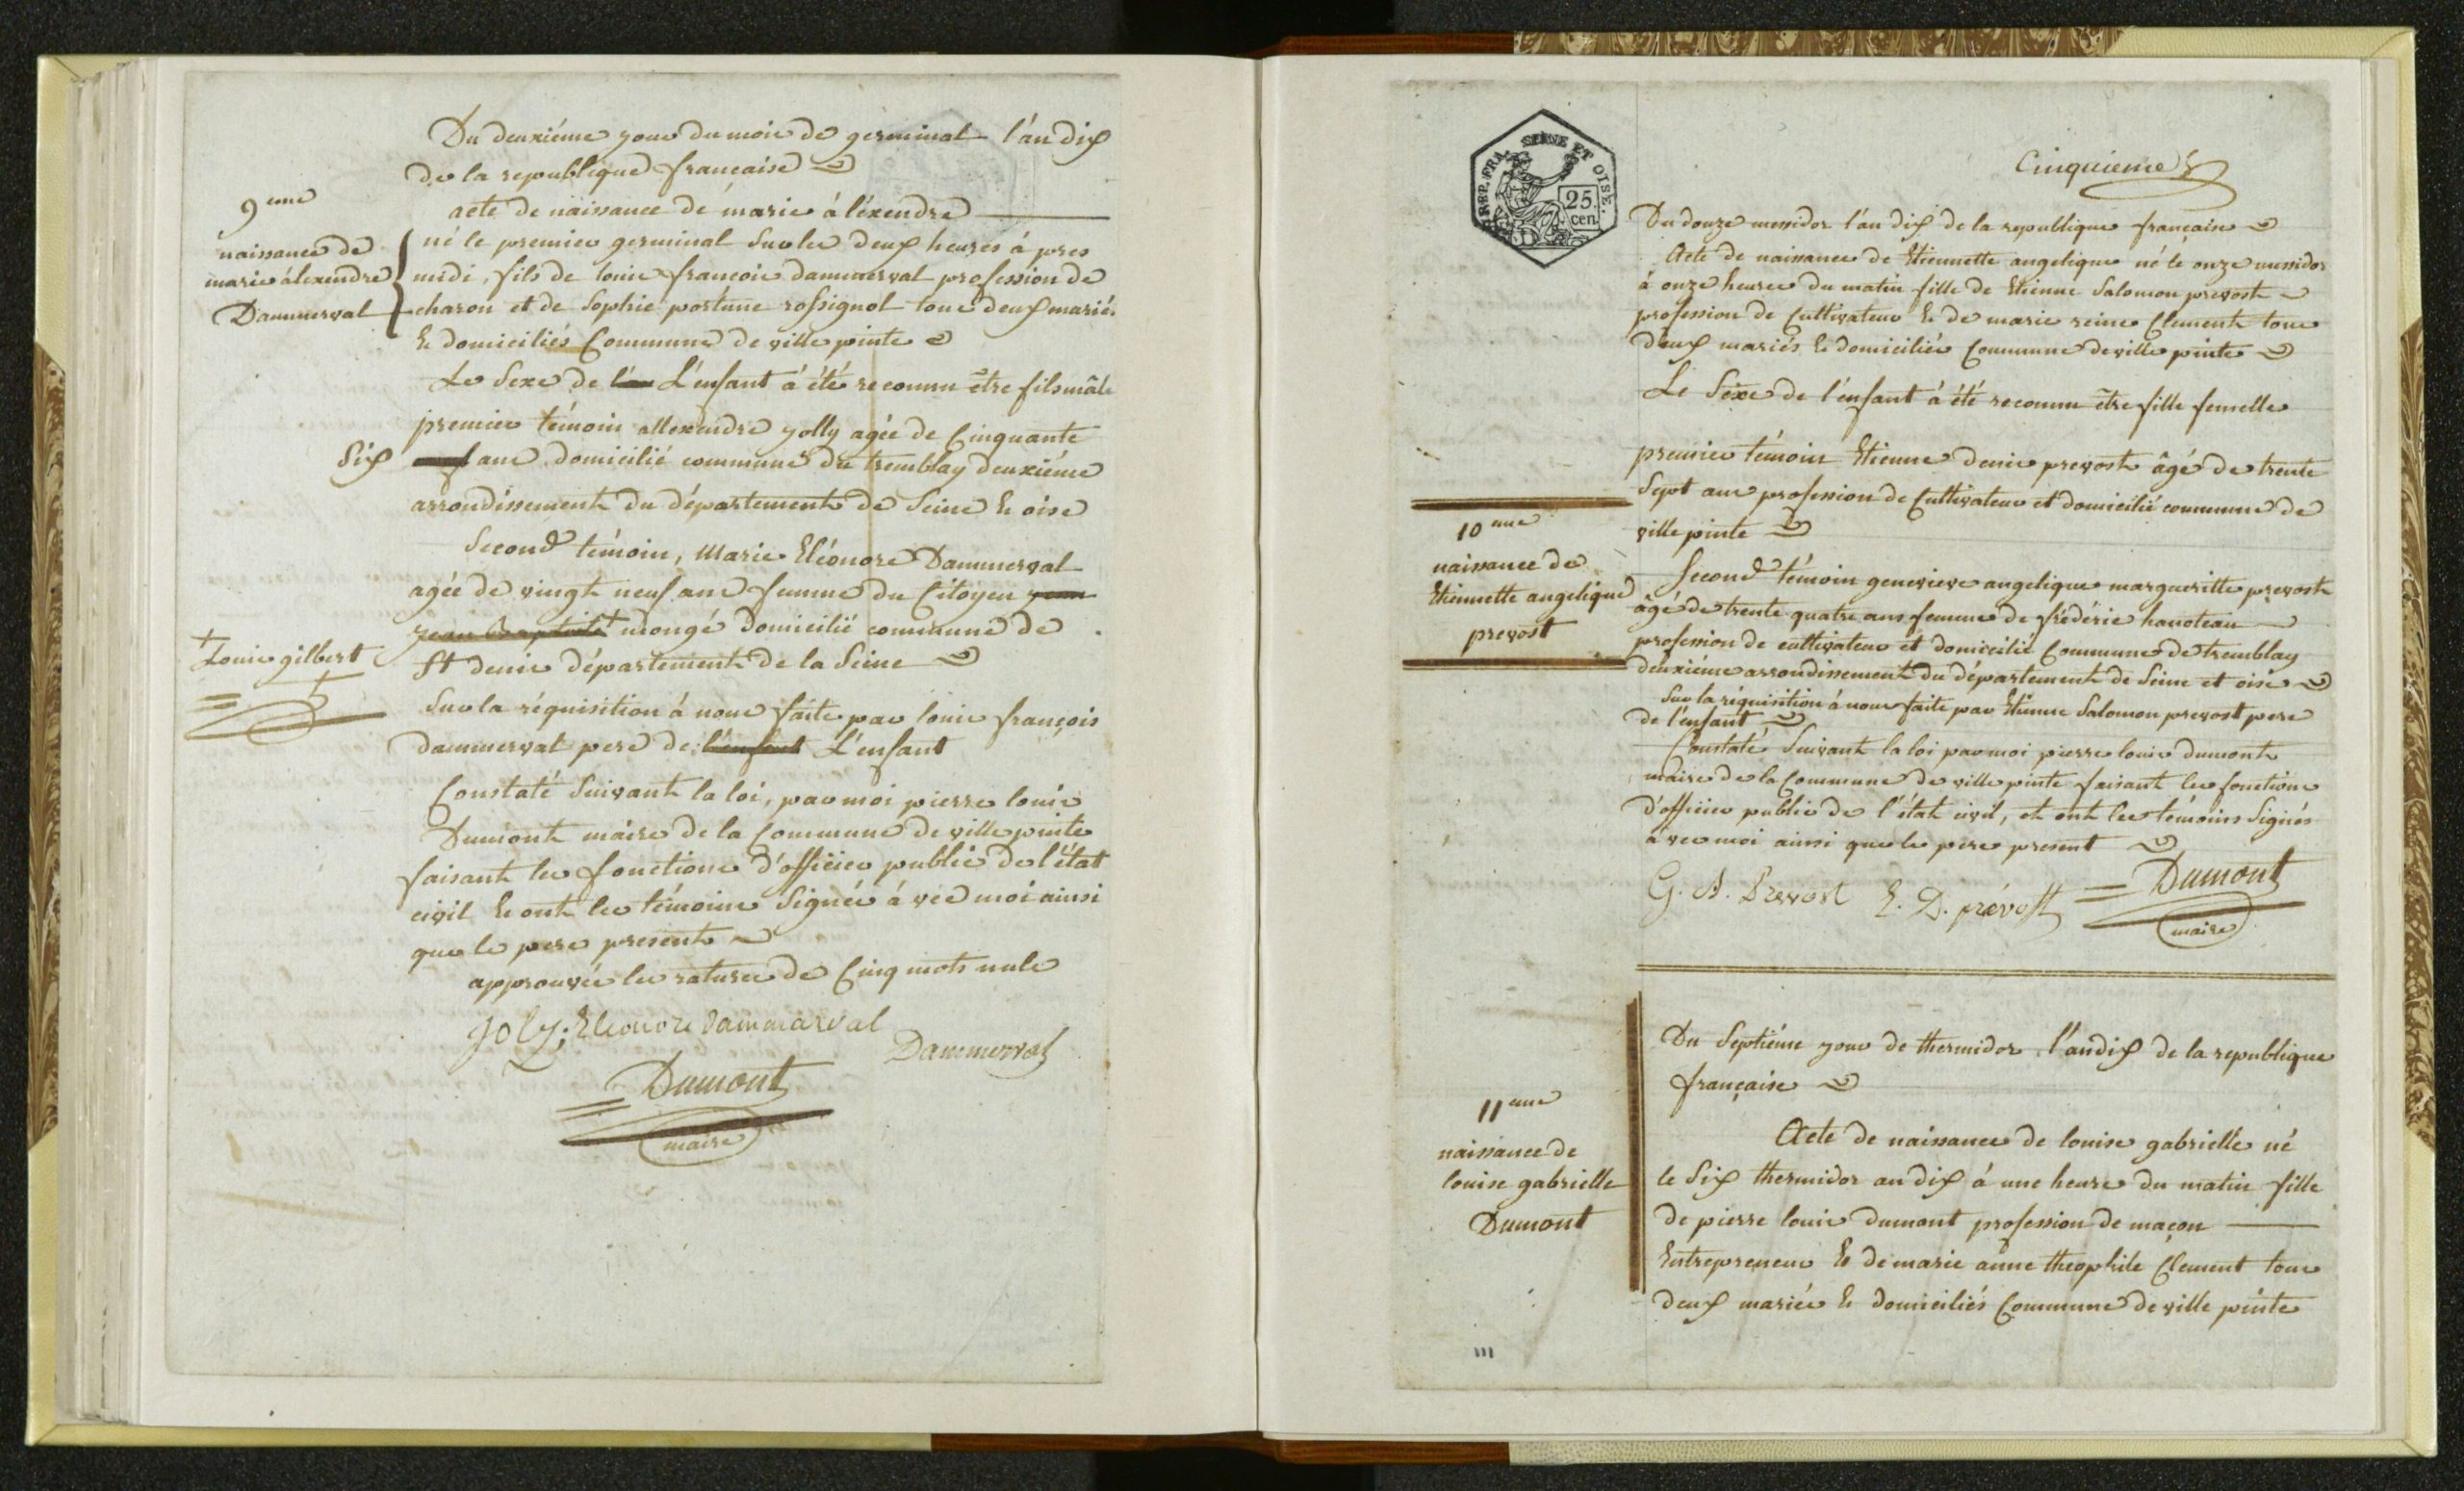 Du deuxiéme jour du mois de germinal l'án dix
de la republique française
9eme
naissance de
marie àlexendre
Dammerval
acte de náissance de marie à léxendre
né le premier germinal Sur les deux heures à pres
midi, fils de louis françois dammerval profession de
charon et de Sophie portune rossignol tous deux mariés
& domiciliés Commune de ville pinte
Le Sexe de L'enfant à été reconnu être fils mâle
premier témoin allexendre jolly agée de Cinquante
Six ans domicilié commune du tremblay deuxiéme
arrondissement du département de Seine & oise
Second témoin, Marie Eléonore Dammerval
agée de vingt neuf ans femme du Citoyen jean
jean Baptiste + mongé domicilié commune de
+ Louis gilbert
St denis département de la Seine
Sur la réquisition à nous faite par louis françois
dammerval pere de l'enfant L'enfant
Constaté Suivant la loi, par moi pierre louis
Dumont máire de la Commune de ville pinte
faisant les fonctions d'officier public de l'état
civil & ont les témoins Signés à vec moi ainsi
que le pere present
approuvée les ratures de Cinq mots nuls
Joly; Eleonore dammarval
Dammerval
Dumont
maire
REP. FRA. SEINE ET OISE.
25.
cen.
Cinquieme
Du douze messidor l'an dix de la republique française
Acte de naissance de Etiennette angelique né le onze messidor
à onze heures du matin fille de Etienne Salomon prevost
profession de Cultivateur & de marie reine Clement tous
deux mariés & domiciliés Commune de ville pinte
Le Sexe de l'enfant à été reconnu être fille femelle
premier témoin Etienne denis prevost âgé de trente
Sept ans profession de Cultivateur et domicilié commune de
ville pinte
10eme
naissance de
Etiennette angelique
prevost
Second témoin genevieve angelique margueritte prevost
âgé de trente quatre ans femme de frédéric hanoteau
profession de cultivateur et domicilié Commune de tremblay
deuxiéme arrondissement du département de Seine et oise
Sur la réquisition à nous faite par Etienne Salomon prevost pere
de l'enfant
Constaté Suivant la loi par moi pierre louis dumont
maire de la Commune de ville pinte faisant les fonctions
d'officier public de l'état civil, et ont les témoins Signés
à vec moi ainsi que le pere present
G. A. Prevost E. D. prévost Dumont
maire
Du Septiéme jour de thermidor l'an dix de la republique
française
11eme
naissance de
louise gabrielle
Dumont
Acte de naissance de louise gabrielle né
le Six thermidor an dix à une heure du matin fille
de pierre louis dumont profession de maçon
Entrepreneur & de marie anne theophile Clement tous
deux mariés & domiciliés Commune de ville pinte